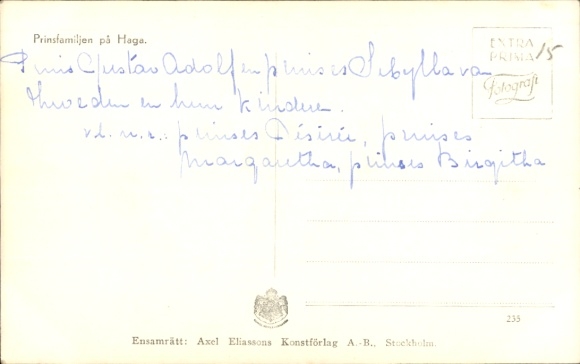 Prinsfamiljen på Haga.
EXTRA
PRIMA
Fotografi
15
Prins Gustav Adolf en prinses Sibylla van
Zweden en hun kinderen.
v.l.n.r.: prinses Désirée, prinses
Margaretha, prinses Birgitha
235
Ensamrätt: Axel Eliassons Konstförlag A.-B., Stockholm.